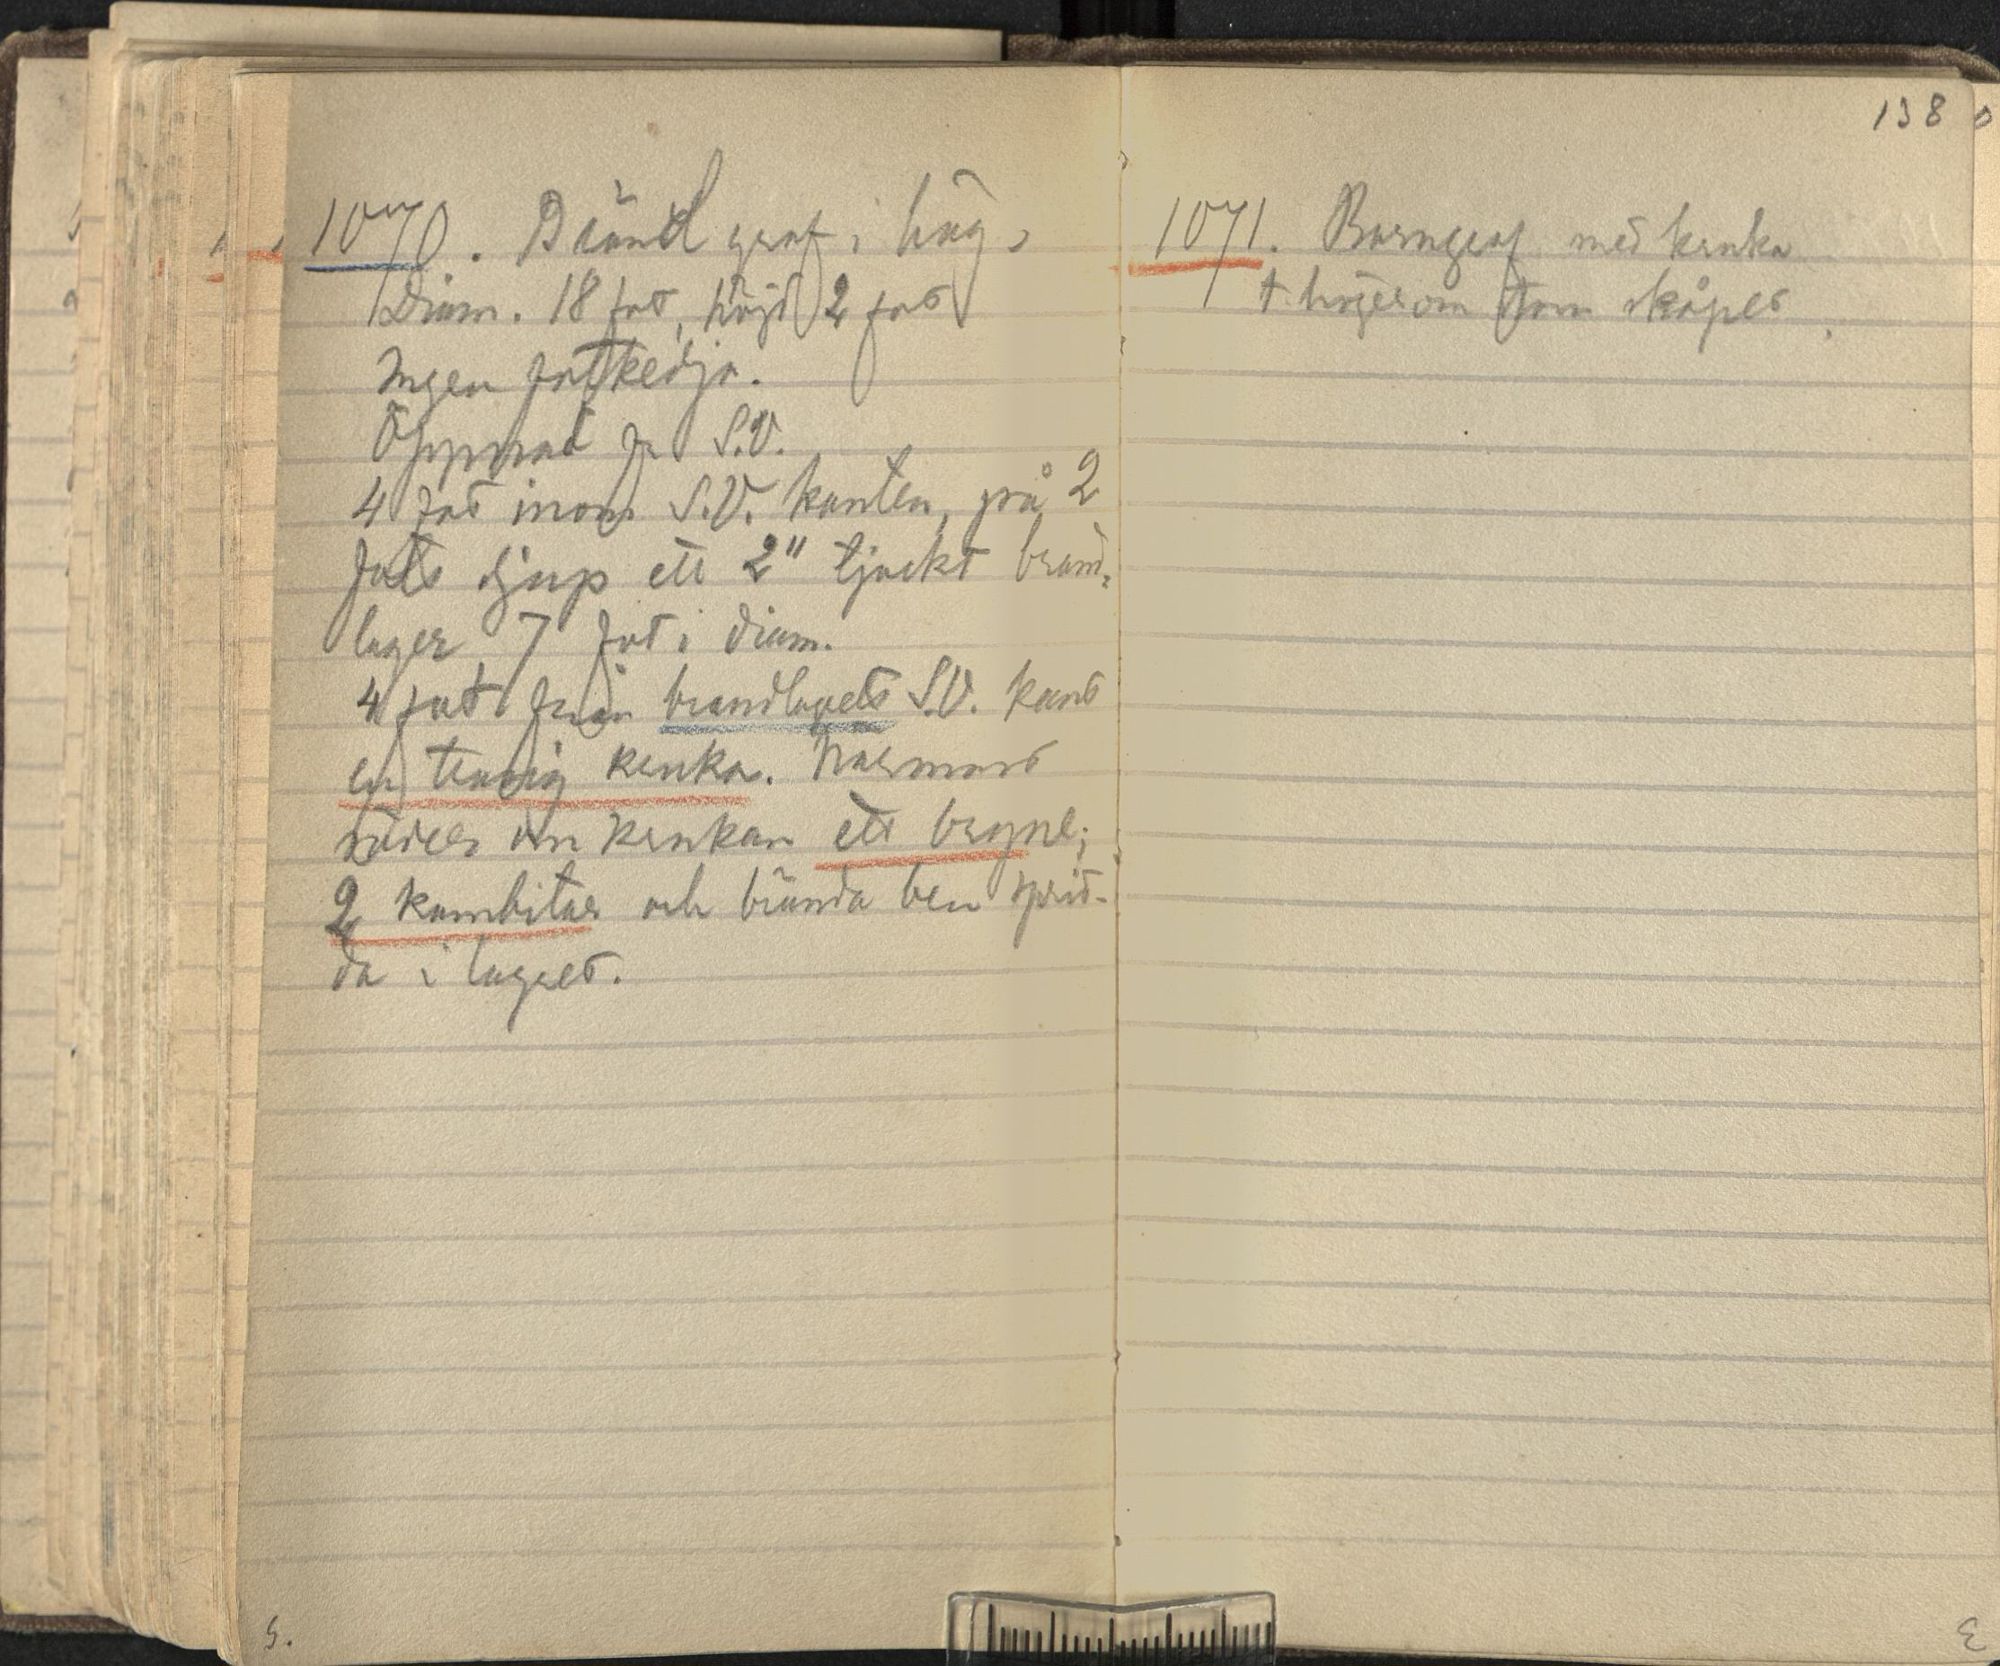 1070. Bränd graf i hög.
Diam. 18 fot, höjd 2 fot
Ingen fotkedja.
Öppnad fr S.V.
4 fot inom S.V. kanten, på 2
fots djup ett 2" tjockt brand-
lager 7 fot i diam.
4 fot från brandlagrets S.V. kant
en trasig kruka. Närmast
söder om krukan ett bryne;
2 kambitar och brända ben sprid-
da i lagret.
5.
138
1071. Barngraf med kruka
t. höger om skåpet